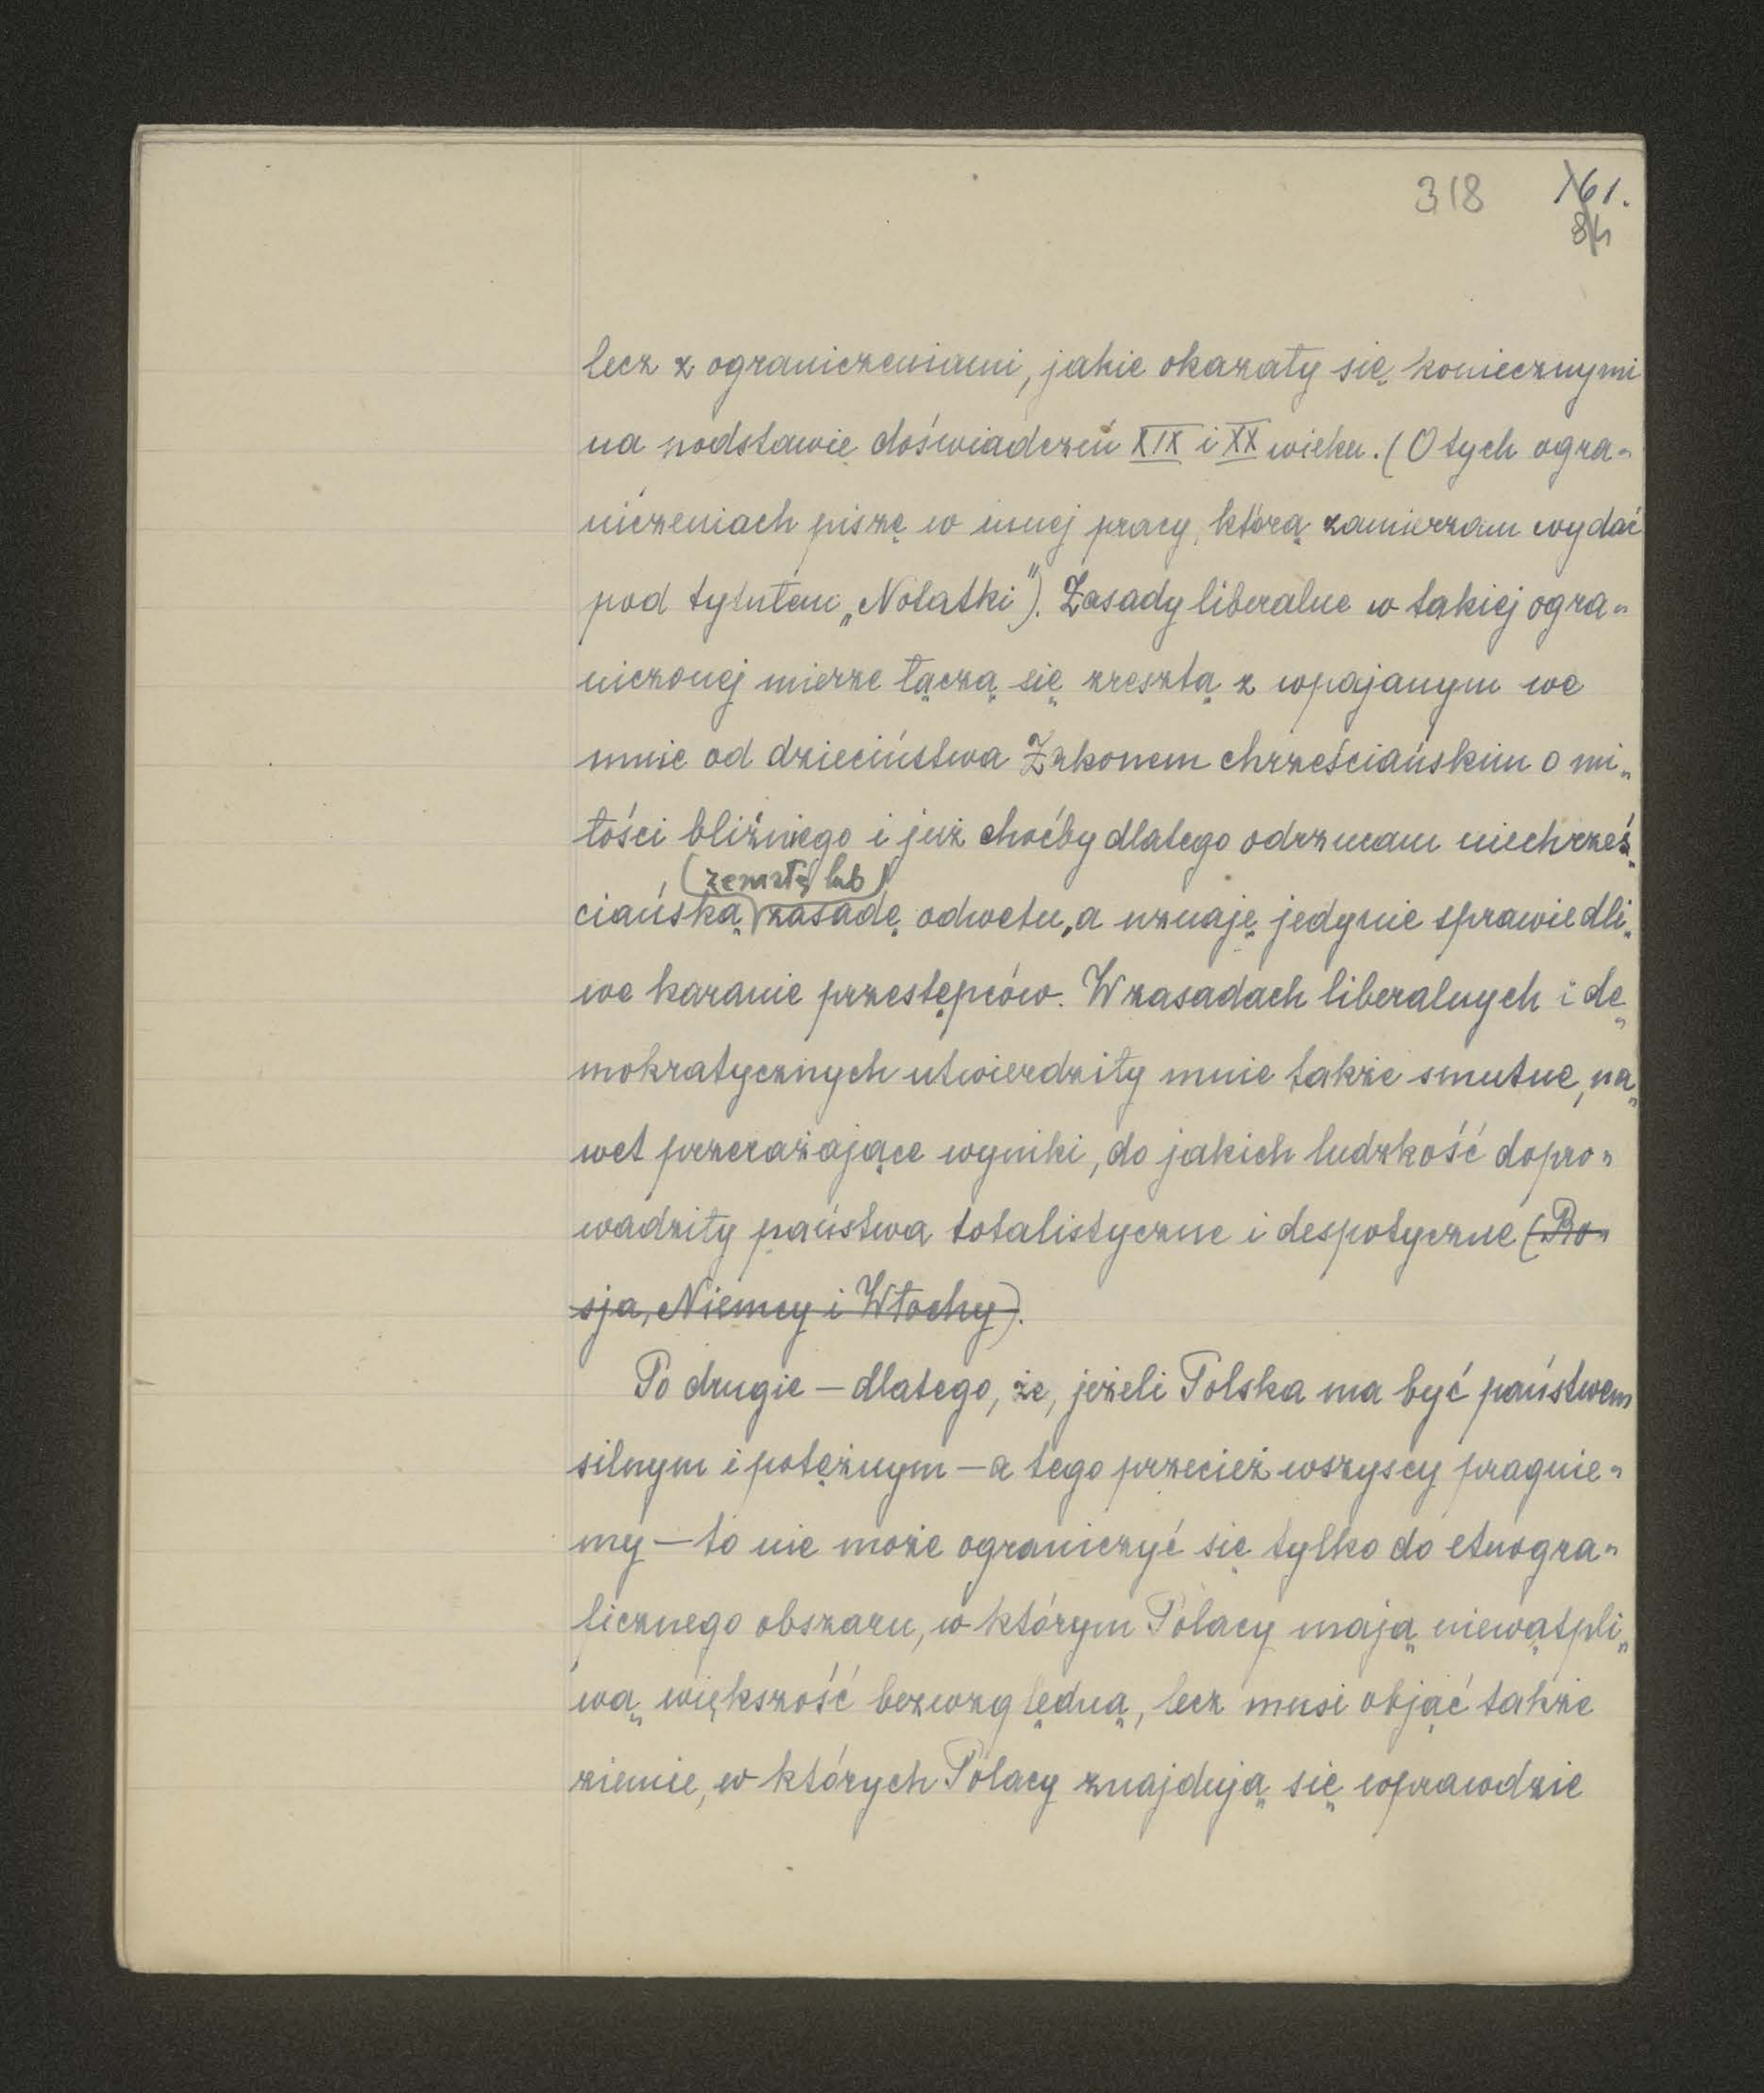 318 161.
84
lecz z ograniczeniami, jakie okazały się koniecznymi
na podstawie doświadczeń XIX i XX wieku. (O tych ogra-
niczeniach piszę w innej pracy, którą zamierzam wydać
pod tytułem „Notatki"). Zasady liberalne w takiej ogra-
niczonej mierze łączą się zresztą z wpajanym we
mnie od dzieciństwa Zakonem chrześciańskim o mi-
łości bliźniego i już choćby dlatego odrzucam niechrześ-
(zemstę lub)
ciańską zasadę odwetu, a uznaję jedynie sprawiedli-
we karanie przestępców. W zasadach liberalnych i de-
mokratycznych utwierdziły mnie także smutne, na-
wet przerażające wyniki, do jakich ludzkość dopro-
wadziły państwa totalistyczne i despotyczne (Ro-
sja, Niemcy i Włochy).
Po drugie — dlatego, że, jeżeli Polska ma być państwem
silnym i potężnym — a tego przecież wszyscy pragnie-
my — to nie może ograniczyć się tylko do etnogra-
ficznego obszaru, w którym Polacy mają niewątpli-
wą większość bezwzględną, lecz musi objąć także
ziemie, w których Polacy znajdują się wprawdzie